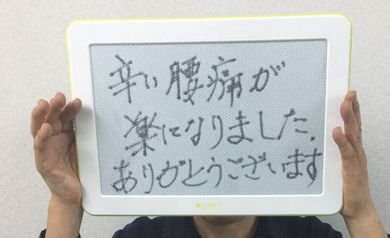 辛い腰痛が
楽になりました.
ありがとうございます